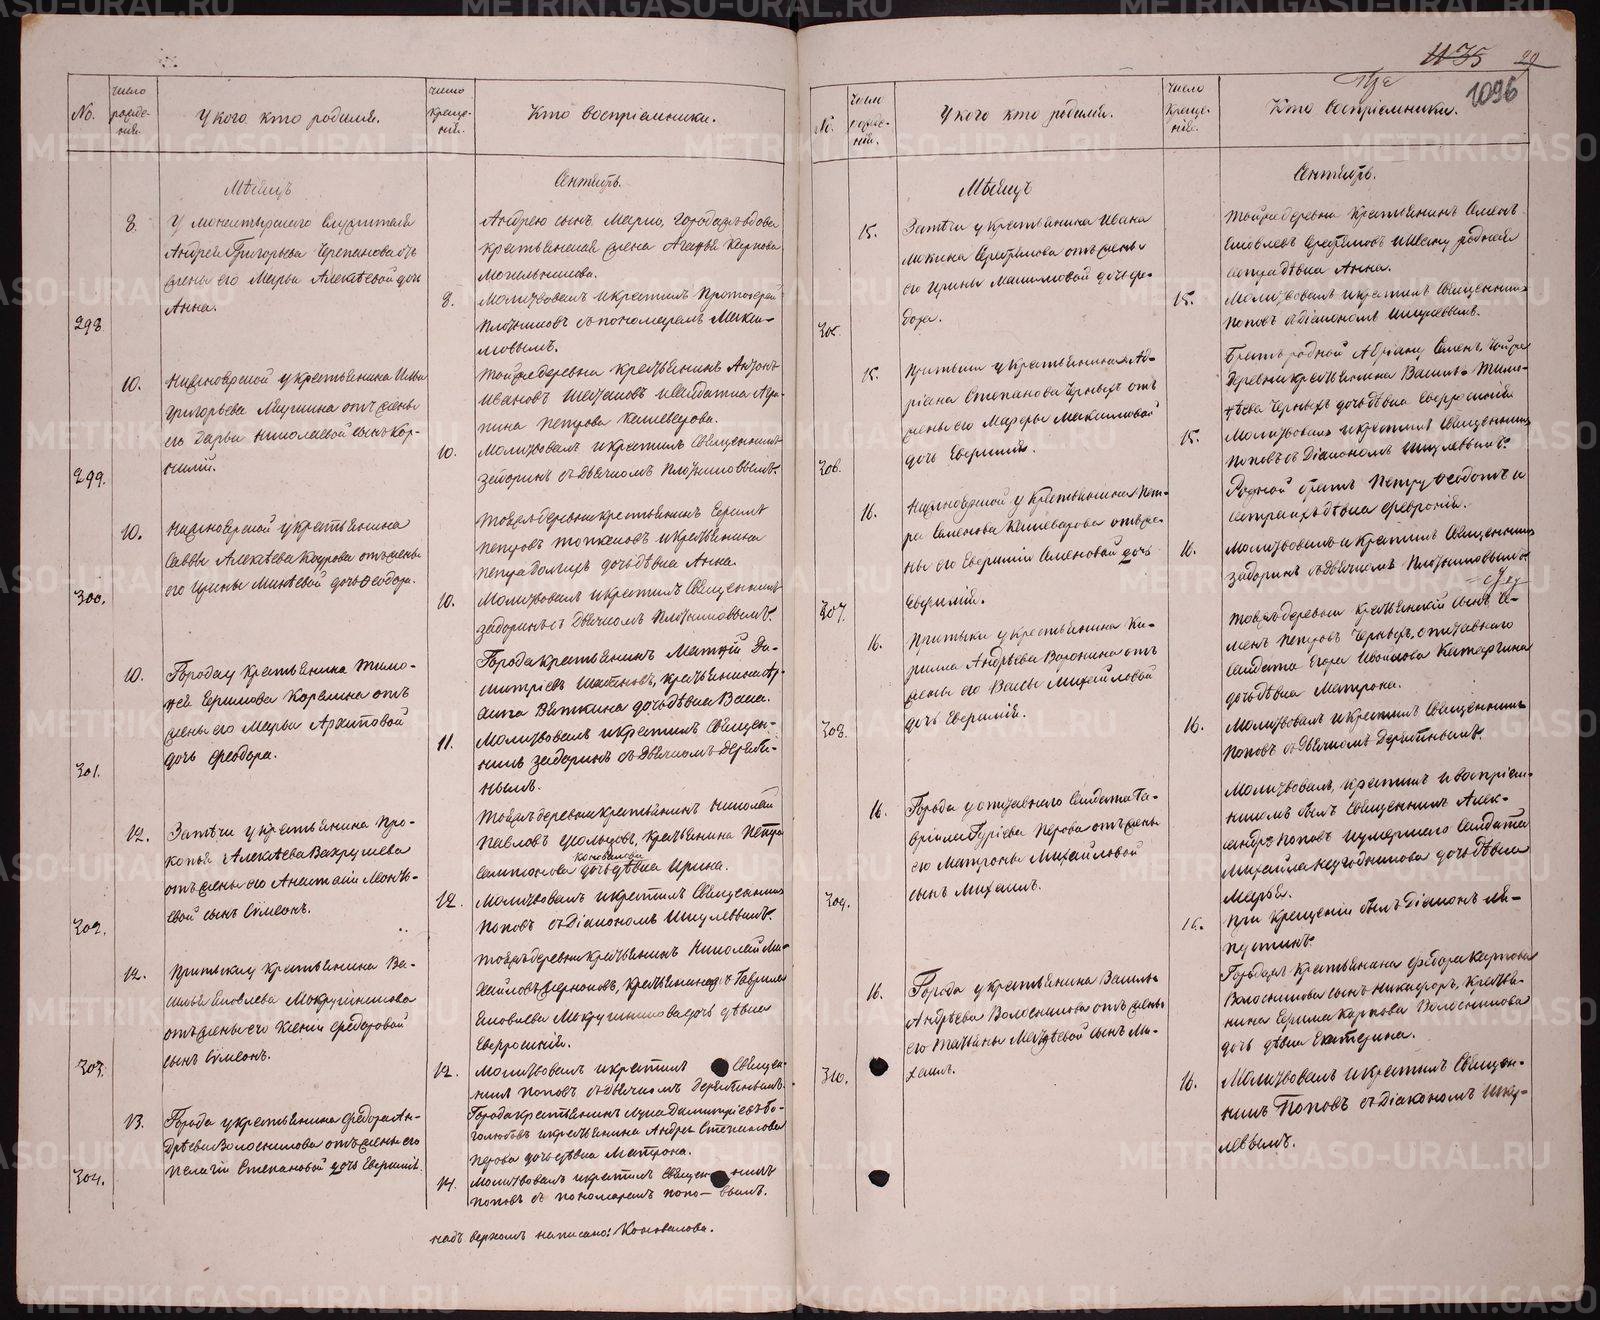 1135 29
1096
№. Число рожде-ния. У кого кто родился. Число Креще-нія. Кто воспріемники.
Мѣсяцъ Сентябрь.
8. У монастырскаго служителя
Андрея Григорьева Черепанова отъ
жены его Марьи Алексѣевой дочь
Анна.
298.
Андрею сынъ Марко, города вдова
крестьянская жена Агафья Карпова
8. Молитвовалъ и крестилъ Протоіерей
Плотниковъ съ пономаремъ Макси-
мовымъ.
10. Нижноярской у крестьянина Ильи
Григорьева отъ жены
его Дарьи Николаевой сынъ Кор-
нилій.
299.
Тойже деревни крестьянинъ Антонъ
Ивановъ и солдатка Агри-
пина Петрова Кашеварова.
10. Молитвовалъ и крестилъ Священникъ
Задоринъ съ Дьячкомъ Плотниковымъ.
10. Нижноярской у крестьянина
Саввы Алексѣева отъ жены
его Ирины Михѣевой дочь Ѳеодора.
300.
Тояжъ деревни крестьянинъ Ефимъ
Петровъ и крестьянина
Петра дочь дѣвка Анна.
10. Молитвовалъ и крестилъ Священникъ
Задоринъ съ Дьячкомъ Плотниковымъ.
10. Города у Крестьянина Тимо-
ѳея Ефимова Корелина отъ
жены его Марьи Архиповой
дочь Феодора.
301.
Города крестьянинъ Матѳій Ди-
митріевъ крестьянина Ар-
Вяткина дочь дѣвка Васса.
11. Молитвовалъ и крестилъ Священ-
никъ Задоринъ съ Дьячкомъ Дерябі-
нымъ.
12. Затечи у крестьянина Про-
копья Алексѣева Вахрушева
отъ жены его Анастасіи
евой сынъ Симеонъ.
302.
Тояжъ деревни крестьянинъ Николай
Павловъ Усольцовъ, крестьянина Петра
Коновалова
Сампсонова дочь дѣвка Ирина.
12. Молитвовалъ и крестилъ Священникъ
Поповъ съ Діакономъ Ишулевымъ.
12. Притыки у крестьянина Ва-
силья Яковлева Мокрушникова
отъ жены его Ксеніи Федоровой
сынъ Симеонъ.
303.
Тояжъ деревни крестьянинъ Николай Ми-
хайловъ крестьянина Гаврила
Яковлева Мокрушникова дочь дѣвка
Евфросинія.
12. Молитвовалъ и крестилъ Священ-
никъ Поповъ съ дьячкомъ Дерябинымъ.
13. Города у крестьянина Федора Ан-
дрѣева Волосникова отъ жены его
Пелагіи Степановой дочь Евфимія.
304.
Города крестьянинъ Лука Димитріевъ Бо-
голюбовъ и крестьянина Андрея Степанова
Перова дочь дѣвка Матрона.
14. Молитвовалъ и крестилъ Священникъ
Поповъ съ пономаремъ Попо— вымъ.
надъ верхомъ написано: Коновалова.
№. Число рожде-нія. У кого кто родился. Число Креще-нія. Кто воспріемники.
Мѣсяцъ Сентябрь.
15. Затечи у крестьянина Ивана
Никина Серебрякова отъ жены
его Ирины Максимовой дочь Фе-
дора.
305.
Тойже деревни Крестьянинъ Семенъ
Яковлевъ и Ивану родная
сестра дѣвка Анна.
15. Молитвовалъ и крестилъ Священникъ
Поповъ съ Діакономъ Ишулевымъ.
15. Притыки у крестьянина Ад-
ріана Степанова Черныхъ отъ
жены его Марѳы Максимовой
дочь Евфимія.
306.
Братъ родной Адріану Семенъ, тойже
деревни крестьянина Василья Тимо-
ѳѣева Черныхъ дочь дѣвка Евфросинія
15. Молитвовалъ и крестилъ Священникъ
Поповъ съ Діакономъ Ишулевымъ.
16. Нижноярской у крестьянина Пет-
ра Семенова Кашеварова отъ же-
ны его Евфиміи Семеновой дочь
Евфимія.
307.
Родной братъ Петру Ѳеодотъ и
сестра ихъ дѣвка Февронія.
16. Молитвовалъ и крестилъ Священникъ
Задоринъ съ Дьячкомъ Плотниковымъ.
16. Притыки у крестьянина Ки-
рилла Андрѣева Воронина отъ
жены его Вассы Михайловой
дочь Евфимія.
308.
Тояжъ деревни крестьянскій сынъ Се-
менъ Петровъ Черныхъ, отставнаго
солдата Егора Иванова Катаргина
дочь дѣвка Матрона.
16. Молитвовалъ и крестилъ Священникъ
Поповъ съ Дьячкомъ Дерябинымъ.
16. Города у отставнаго Солдата Га-
вріила Гуріева Перова отъ жены
его Матроны Михайловой
сынъ Михаилъ.
309.
Молитвовалъ, крестилъ и воспріем-
никомъ былъ Священникъ Алек-
сандръ Поповъ и умершаго Солдата
Михайла дочь дѣвка
Марья.
16. При крещеніи былъ Діаконъ Ля-
пустинъ.
16. Города у крестьянина Василья
Андрѣева Волосникова отъ жены
его Татьяны Матѳѣевой сынъ Ми-
хаилъ.
310.
Города Крестьянина Федора Карпова
Волосникова сынъ Никифоръ, Крестья-
нина Ефима Карпова Волосникова
дочь дѣвка Екатерина.
16. Молитвовалъ и крестилъ Священ-
никъ Поповъ съ Діакономъ Ишу-
левымъ.